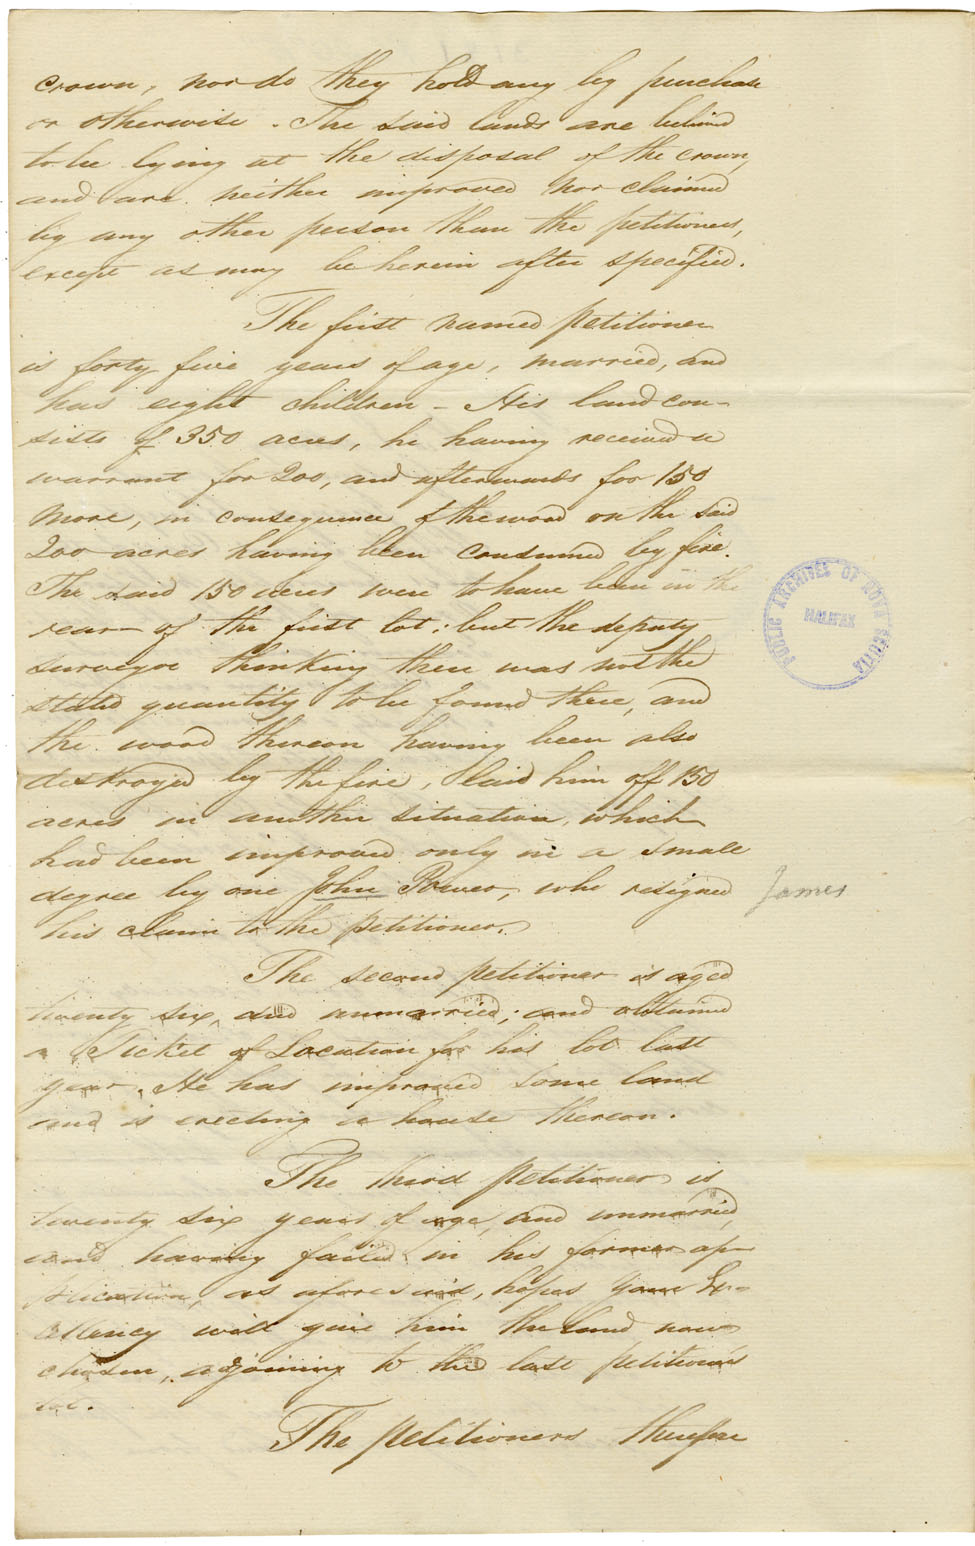 crown, nor do they hold any by purchase
or otherwise. The said lands are believed
to be lying at the disposal of the crown,
and are neither improved nor claimed
by any other person than the petitioners,
except as may be herein after specified.
The first named petitioner
is forty five years of age, married, and
has eight children - His land con-
sists of 350 acres, he having received a
warrant for 200, and afterwards for 150
more, in consequence of the wood on the said
200 acres having been consumed by fire.
The said 150 acres were to have been in the
rear of the first lot; but the deputy
surveyor thinking there was not the
stated quantity to be found there, and
the wood thereon having been also
destroyed by the fire, laid him off 150
acres in another situation, which
had been improved only in a small
degree by one John Power, who resigned
James
his claim to the petitioner.
The second petitioner is aged
twenty six, and unmarried; and obtained
a Ticket of Location for his lot last
year. He has improved some land
and is erecting a house thereon.
The third petitioner is
twenty six years of age, and unmarried,
and having failed in his former ap-
plication, as aforesaid, hopes your Ex-
cellency will give him the land now
chosen, adjoining to the last petitioner's
lot.
The petitioners therefore
PUBLIC ARCHIVES OF NOVA SCOTIA
HALIFAX